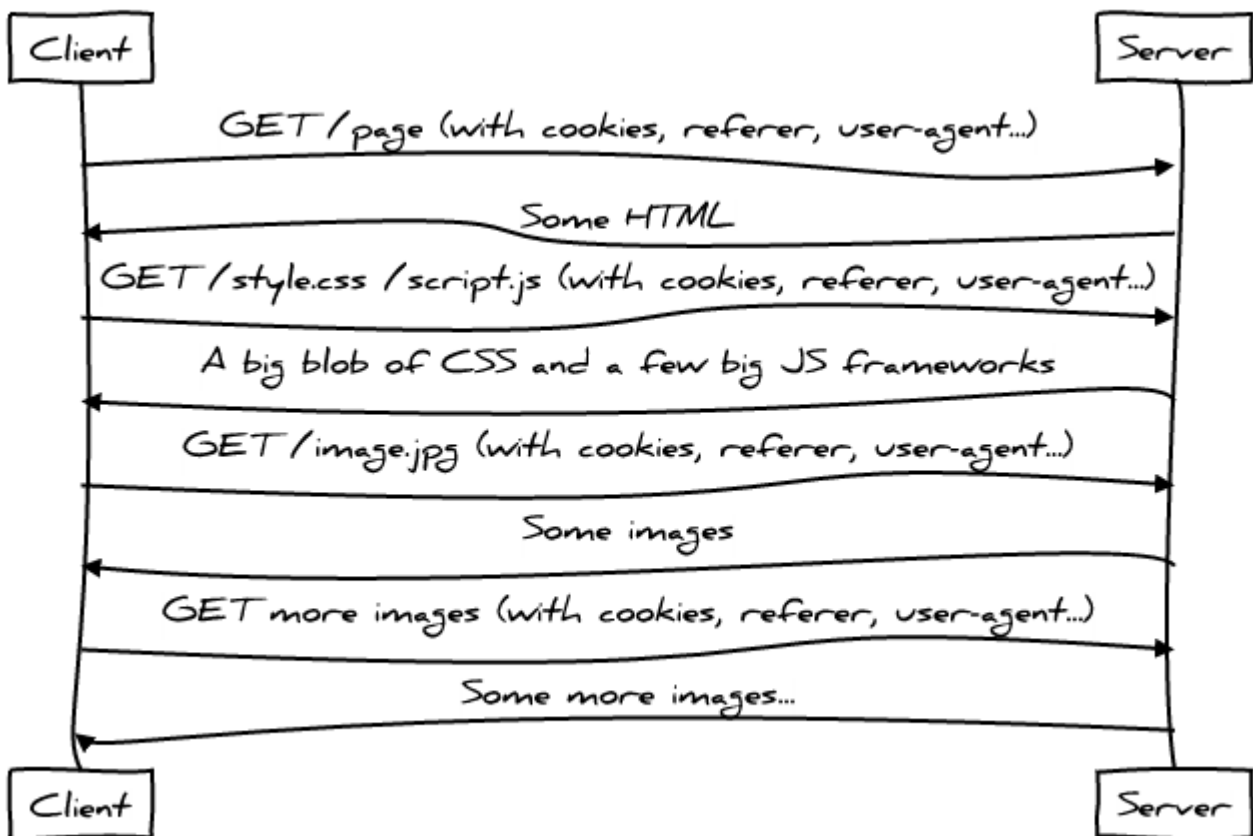 Client Server
GET /page (with cookies, referer, user-agent...)
Some HTML
GET /style.css /script.js (with cookies, referer, user-agent...)
A big blob of CSS and a few big JS frameworks
GET /image.jpg (with cookies, referer, user-agent...)
Some images
GET more images (with cookies, referer, user-agent...)
Some more images...
Client Server